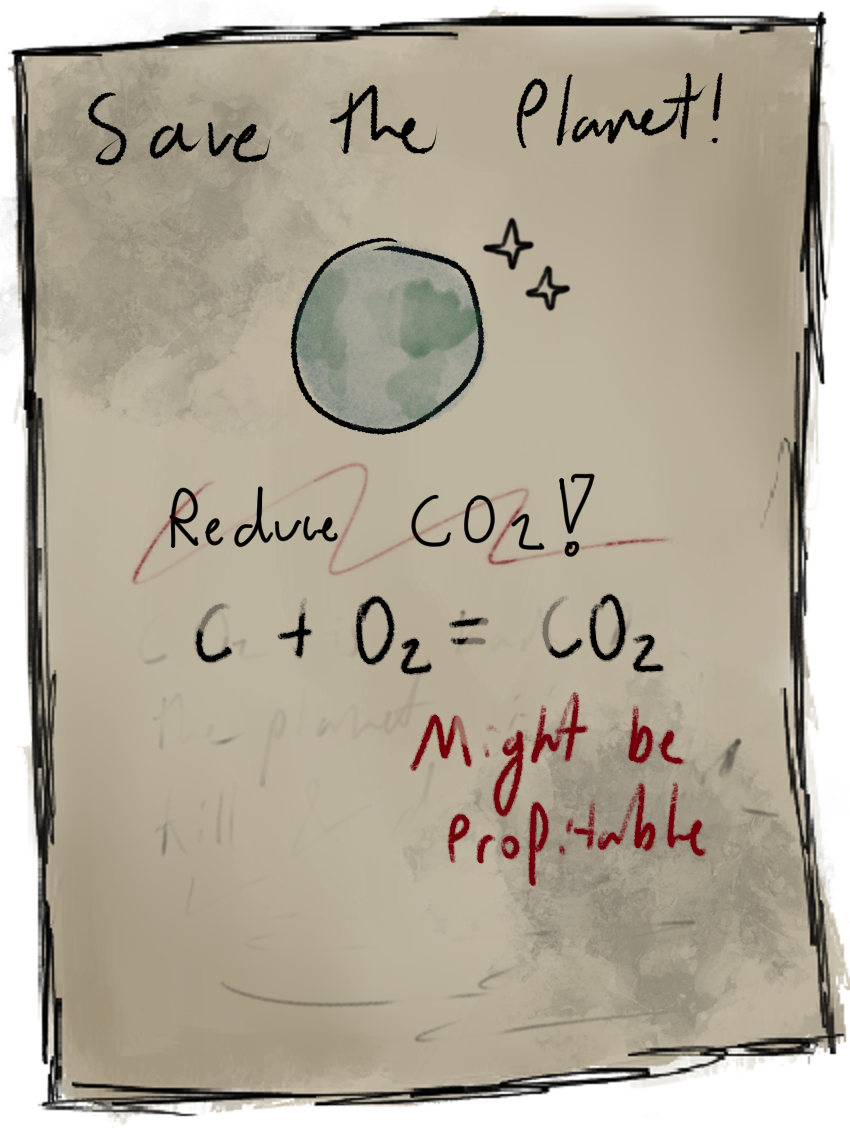 Save the Planet!
Reduce CO₂!
C + O₂ = CO₂
the planet
Might be
kill
Profitable